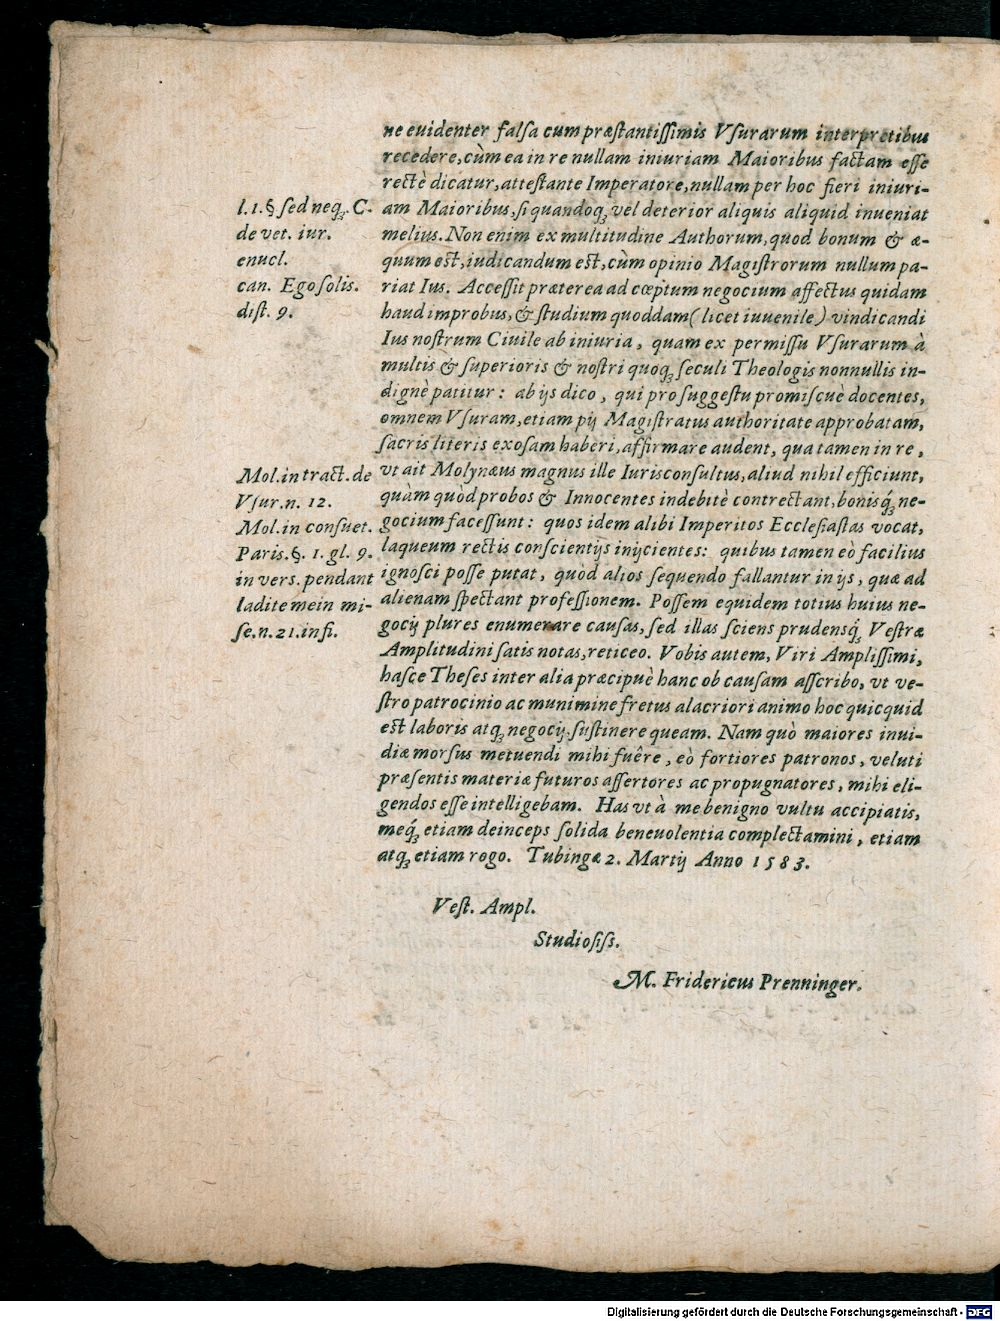 ne euidenter falsa cum præstantissimis Vsurarum interpretibus
recedere, cùm ea in re nullam iniuriam Maioribus factam esse
rectè dicatur, attestante Imperatore, nullam per hoc fieri iniuri-
am Maioribus, si quandoq₃ vel deterior aliquis aliquid inueniat
melius. Non enim ex multitudine Authorum, quod bonum & æ-
quum est, iudicandum est, cùm opinio Magistrorum nullum pa-
riat Ius. Accessit præterea ad cœptum negocium affectus quidam
haud improbus, & studium quoddam (licet iuuenile) vindicandi
Ius nostrum Ciuile ab iniuria, quam ex permissu Vsurarum à
multis & superioris & nostri quoq₃ seculi Theologis nonnullis in-
dignè patitur: ab ijs dico, qui pro suggestu promiscuè docentes,
omnem Vsuram, etiam pij Magistratus authoritate approbatam,
sacris literis exosam haberi, affirmare audent, qua tamen in re,
vt ait Molynæus magnus ille Iurisconsultus, aliud nihil efficiunt,
quàm quòd probos & Innocentes indebitè contrectant, bonisq́₃ ne-
gocium facessunt: quos idem alibi Imperitos Ecclesiastas vocat,
laqueum rectis conscientijs inijcientes: quibus tamen eò facilius
ignosci posse putat, quòd alios sequendo fallantur in ijs, quæ ad
alienam spectant professionem. Possem equidem totius huius ne-
gocij plures enumerare causas, sed illas sciens prudensq́₃ Vestræ
Amplitudini satis notas, reticeo. Vobis autem, Viri Amplissimi,
hasce Theses inter alia præcipuè hanc ob causam asscribo, vt ve-
stro patrocinio ac munimine fretus alacriori animo hoc quicquid
est laboris atq₃ negocij, sustinere queam. Nam quò maiores inui-
diæ morsus metuendi mihi fuêre, eò fortiores patronos, veluti
præsentis materiæ futuros assertores ac propugnatores, mihi eli-
gendos esse intelligebam. Has vt à me benigno vultu accipiatis,
meq́₃ etiam deinceps solida beneuolentia complectamini, etiam
atq₃ etiam rogo. Tubingæ 2. Martij Anno 1583.
Vest. Ampl.
Studiosiss.
M. Fridericus Prenninger.
l.1.§ sed neq₃ C.
de vet. iur.
enucl.
can. Ego solis.
dist. 9.
Mol. in tract. de
Vsur. n. 12.
Mol. in consuet.
Paris. §. 1. gl. 9.
in vers. pendant
ladite mein mi-
se. n. 21. infi.
Digitalisierung gefördert durch die Deutsche Forschungsgemeinschaft - DFG